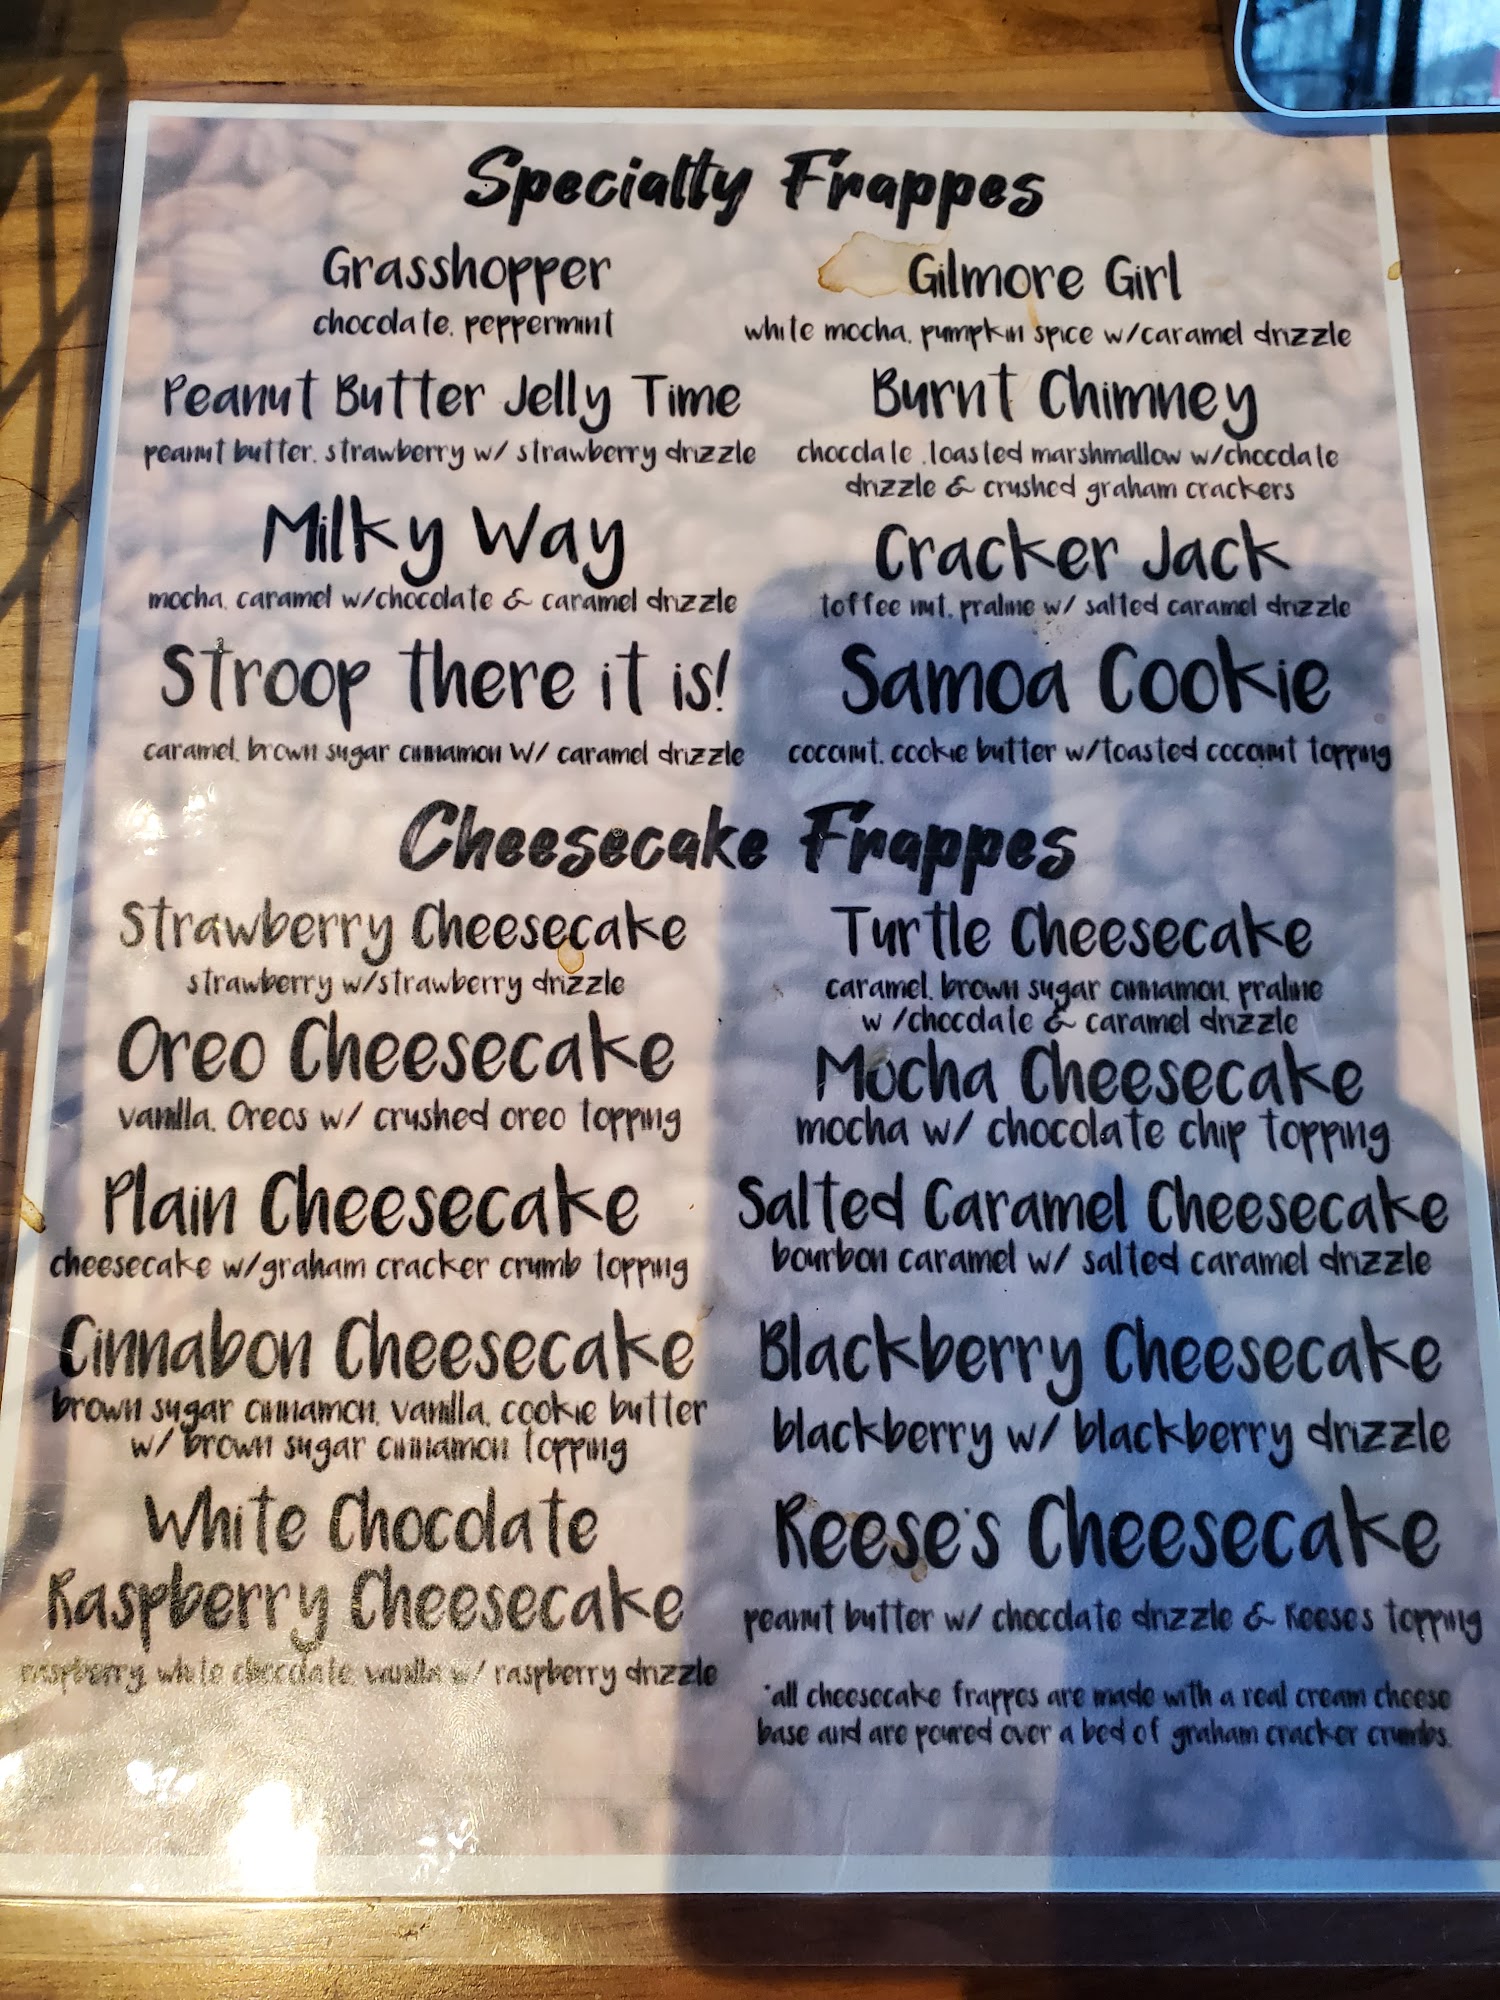 Specialty Frappes
Grasshopper
chocolate, peppermint
Peanut Butter Jelly Time
peanut butter, strawberry w/ strawberry drizzle
Milky Way
mocha, caramel w/chocolate & caramel drizzle
Stroop there it is!
caramel, brown sugar cinnamon W/ caramel drizzle
Gilmore Girl
white mocha, pumpkin spice w/caramel drizzle
Burnt Chimney
chocolate ,toasted marshmallow w/chocolate
drizzle & crushed graham crackers
Cracker Jack
toffee nut, praline w/ salted caramel drizzle
Samoa Cookie
coconut, cookie butter w/toasted coconut topping
Cheesecake Frappes
Strawberry Cheesecake
strawberry w/strawberry drizzle
Oreo Cheesecake
vanilla, Oreos w/ crushed oreo topping
Plain Cheesecake
cheesecake w/graham cracker crumb topping
Cinnabon Cheesecake
brown sugar cinnamon, vanilla, cookie butter
w/ brown sugar cinnamon topping
White Chocolate
Raspberry Cheesecake
raspberry, white chocolate, vanilla w/ raspberry drizzle
Turtle Cheesecake
caramel, brown sugar cinnamon, praline
w /chocolate & caramel drizzle
Mocha Cheesecake
mocha w/ chocolate chip topping
Salted Caramel Cheesecake
bourbon caramel w/ salted caramel drizzle
Blackberry Cheesecake
blackberry w/ blackberry drizzle
Reese's Cheesecake
peanut butter w/ chocolate drizzle & Reese's topping
*all cheesecake frappes are made with a real cream cheese
base and are poured over a bed of graham cracker crumbs.